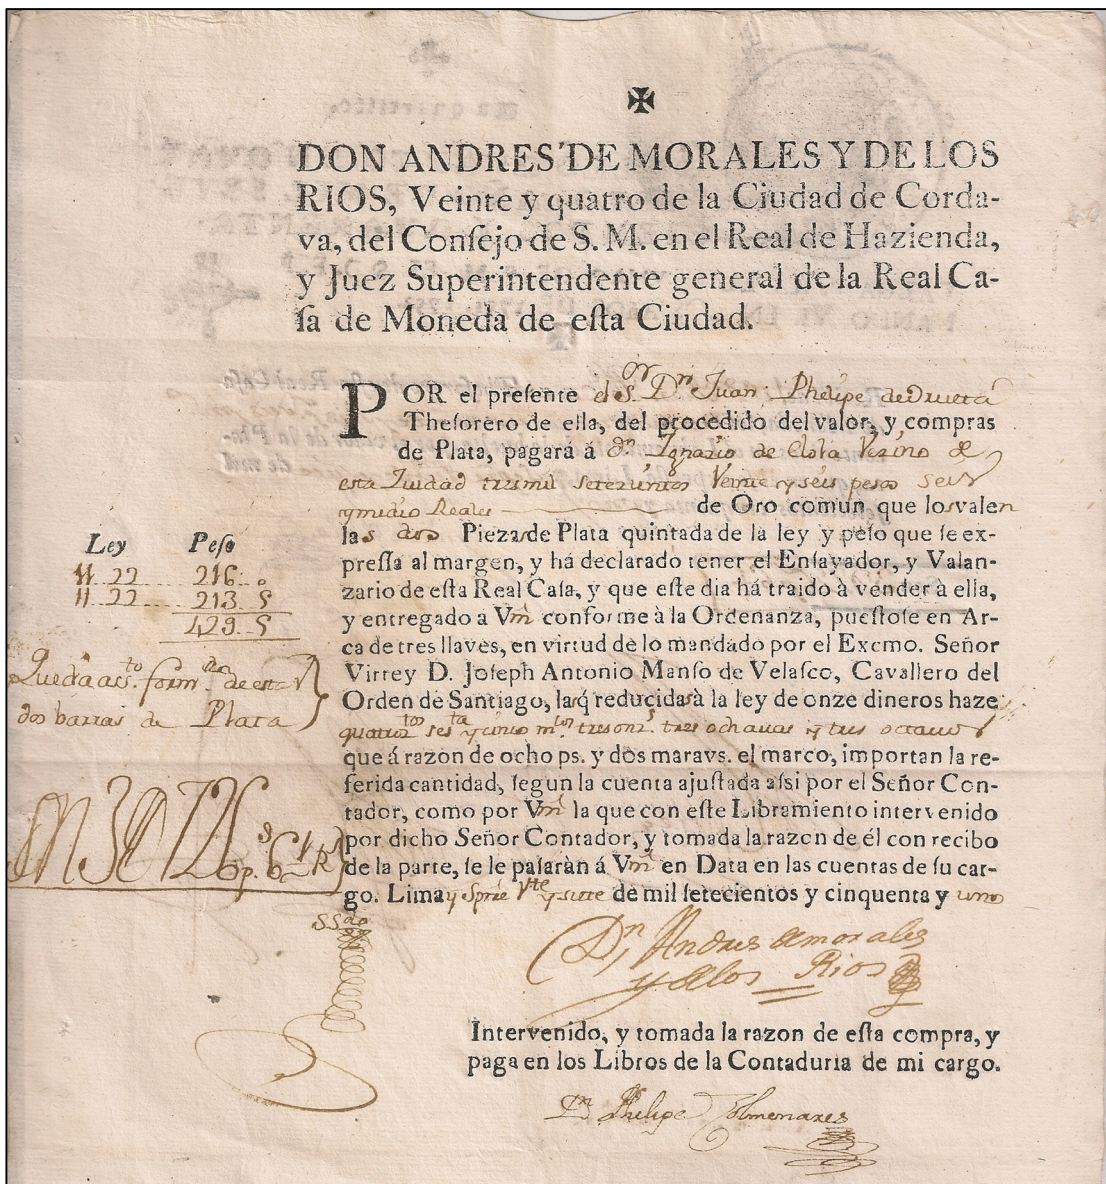 ✠
DON ANDRES DE MORALES Y DE LOS
RIOS, Veinte y quatro de la Ciudad de Corda-
va, del Conſejo de S. M. en el Real de Hazienda,
y Juez Superintendente general de la Real Ca-
ſa de Moneda de eſta Ciudad.
POR el preſente el S.or Dn Juan Phelipe de
Theſorero de ella, del procedido del valor, y compras
de Plata, pagará á Dn Ignazio de Vezino de
esta Ziudad tres mil setezientos Veinte y séis pesos seis
y medio Reales de Oro comun que los valen
las dos Piezas de Plata quintada de la ley y peſo que ſe ex-
preſſa al margen, y há declarado tener el Enſayador, y Valan-
zario de eſta Real Caſa, y que eſte dia há traido à vender à ella,
y entregado a Vm conforme à la Ordenanza, pueſtoſe en Ar-
ca de tres llaves, en virtud de lo mandado por el Excmo. Señor
Virrey D. Joſeph Antonio Manſo de Velaſco, Cavallero del
Orden de Santiago, las q̃ reducidas à la ley de onze dineros haze
quatroz.tos ses.ta y cinco m.cos tres onz.s tres ochavas y tres octavos
que á razon de ocho ps. y dos maravs. el marco, importan la re-
ferida cantidad, ſegun la cuenta ajuſtada aſsi por el Señor Con-
tador, como por Vm la que con eſte Libramiento intervenido
por dicho Señor Contador, y tomada la razon de él con recibo
de la parte, ſe le paſaràn á Vm en Data en las cuentas de ſu car-
go. Lima y Spre Vte y siete de mil ſetecientos y cinquenta y uno
Ley Peſo
11..22... 216..0
11..22... 213..5
429..5
Queda form. de estas
dos barras de Plata
3U726 p.s 6 1/2 R.s
Dn Andres de morales
y de los Rios
Intervenido, y tomada la razon de eſta compra, y
paga en los Libros de la Contaduria de mi cargo.
Dn Phelipe Colmenares